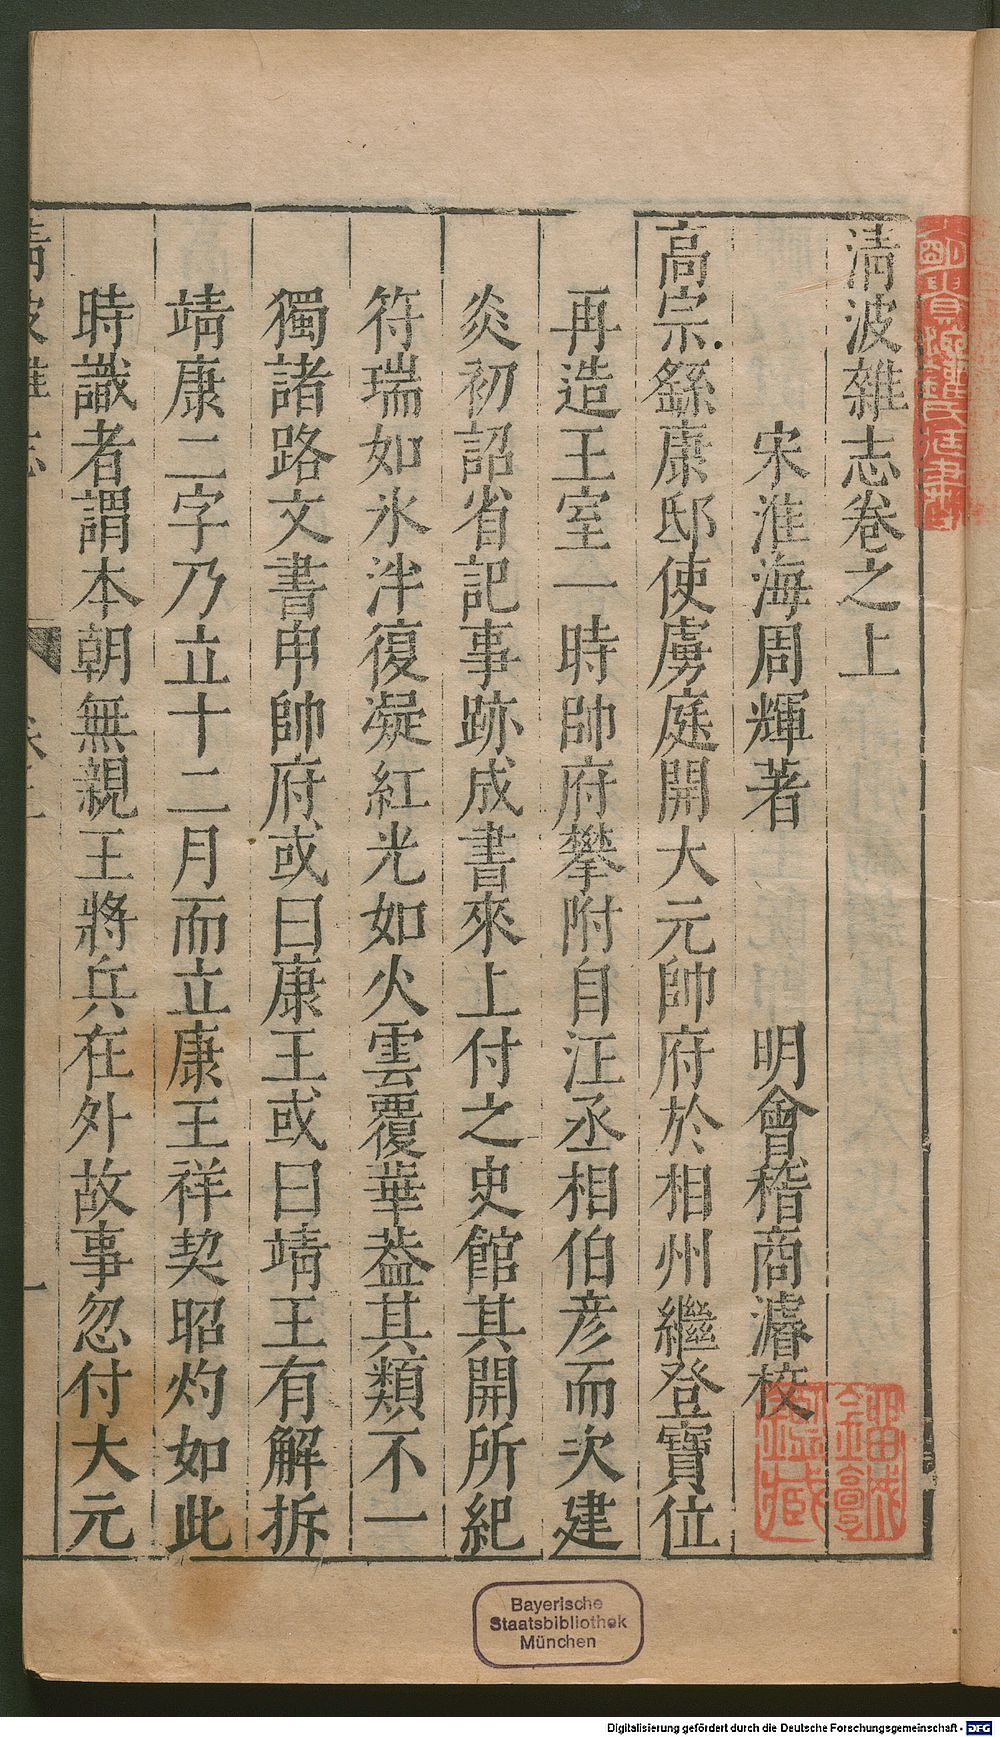 清波雜志卷之上
宋淮海周輝著 明會稽商濬校
高宗繇康邸使虜庭開大元帥府於相州繼登寶位
再造王室一時帥府攀附自汪丞相伯彥而次建
炎初詔省記事跡成書來上付之史館其開所紀
符瑞如氷泮復凝紅光如火雲覆華葢其類不一
獨諸路文書申帥府或曰康王或曰靖王有解拆
靖康二字乃立十二月而立康王祥契昭灼如此
時識者謂本朝無親王將兵在外故事忽付大元
Bayerische
Staatsbibliothek
München
Digitalisierung gefördert durch die Deutsche Forschungsgemeinschaft - DFG